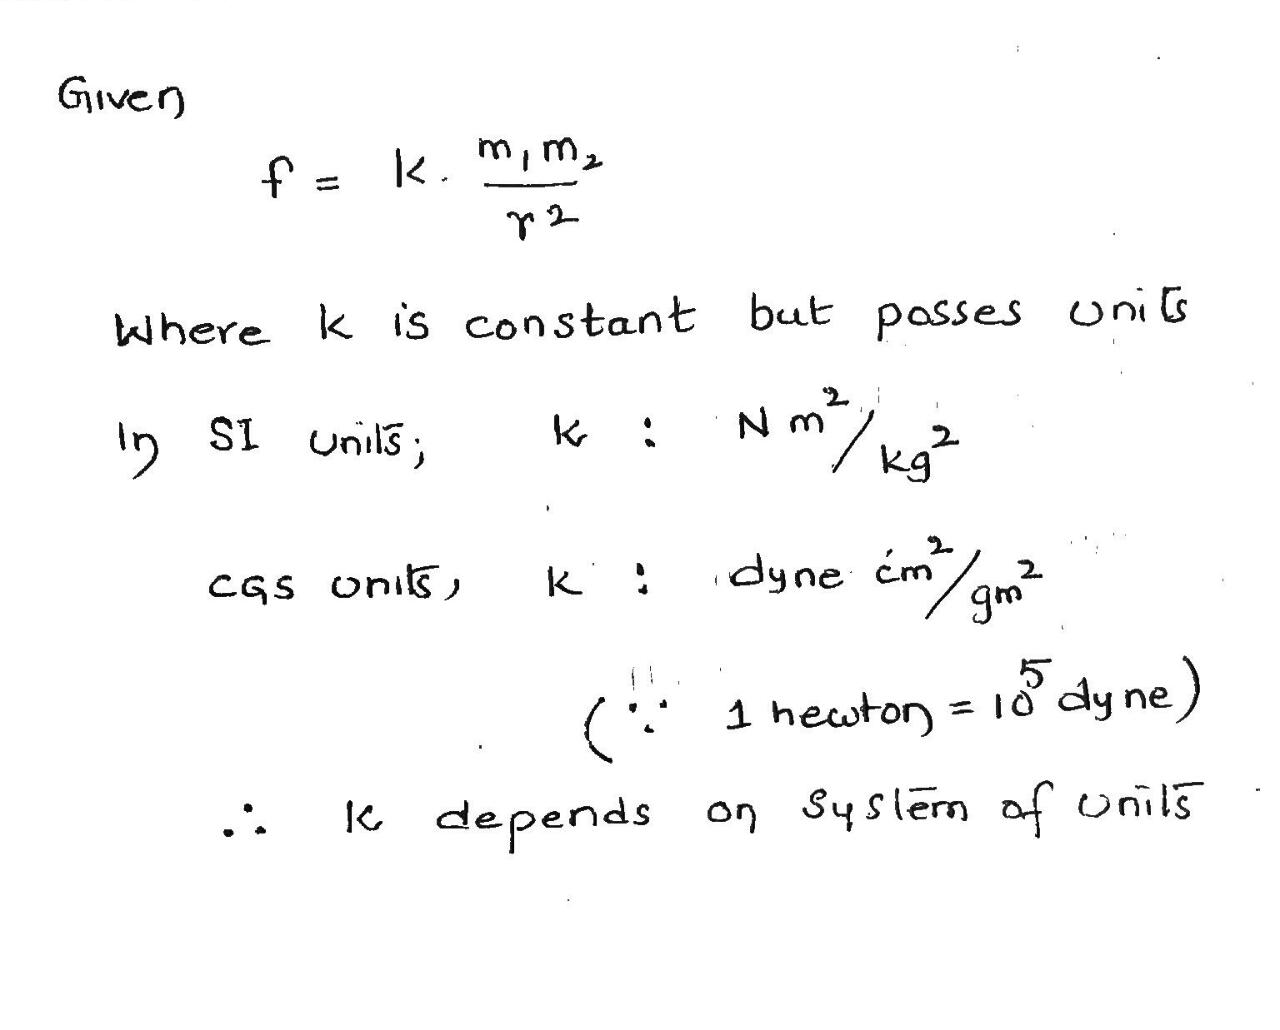 Given
f = k. m₁m₂ / r²
Where k is constant but posses units
In SI units; k : N m²/kg²
CGS units, k : dyne cm²/gm²
(∵ 1 newton = 10⁵ dyne)
∴ k depends on system of units